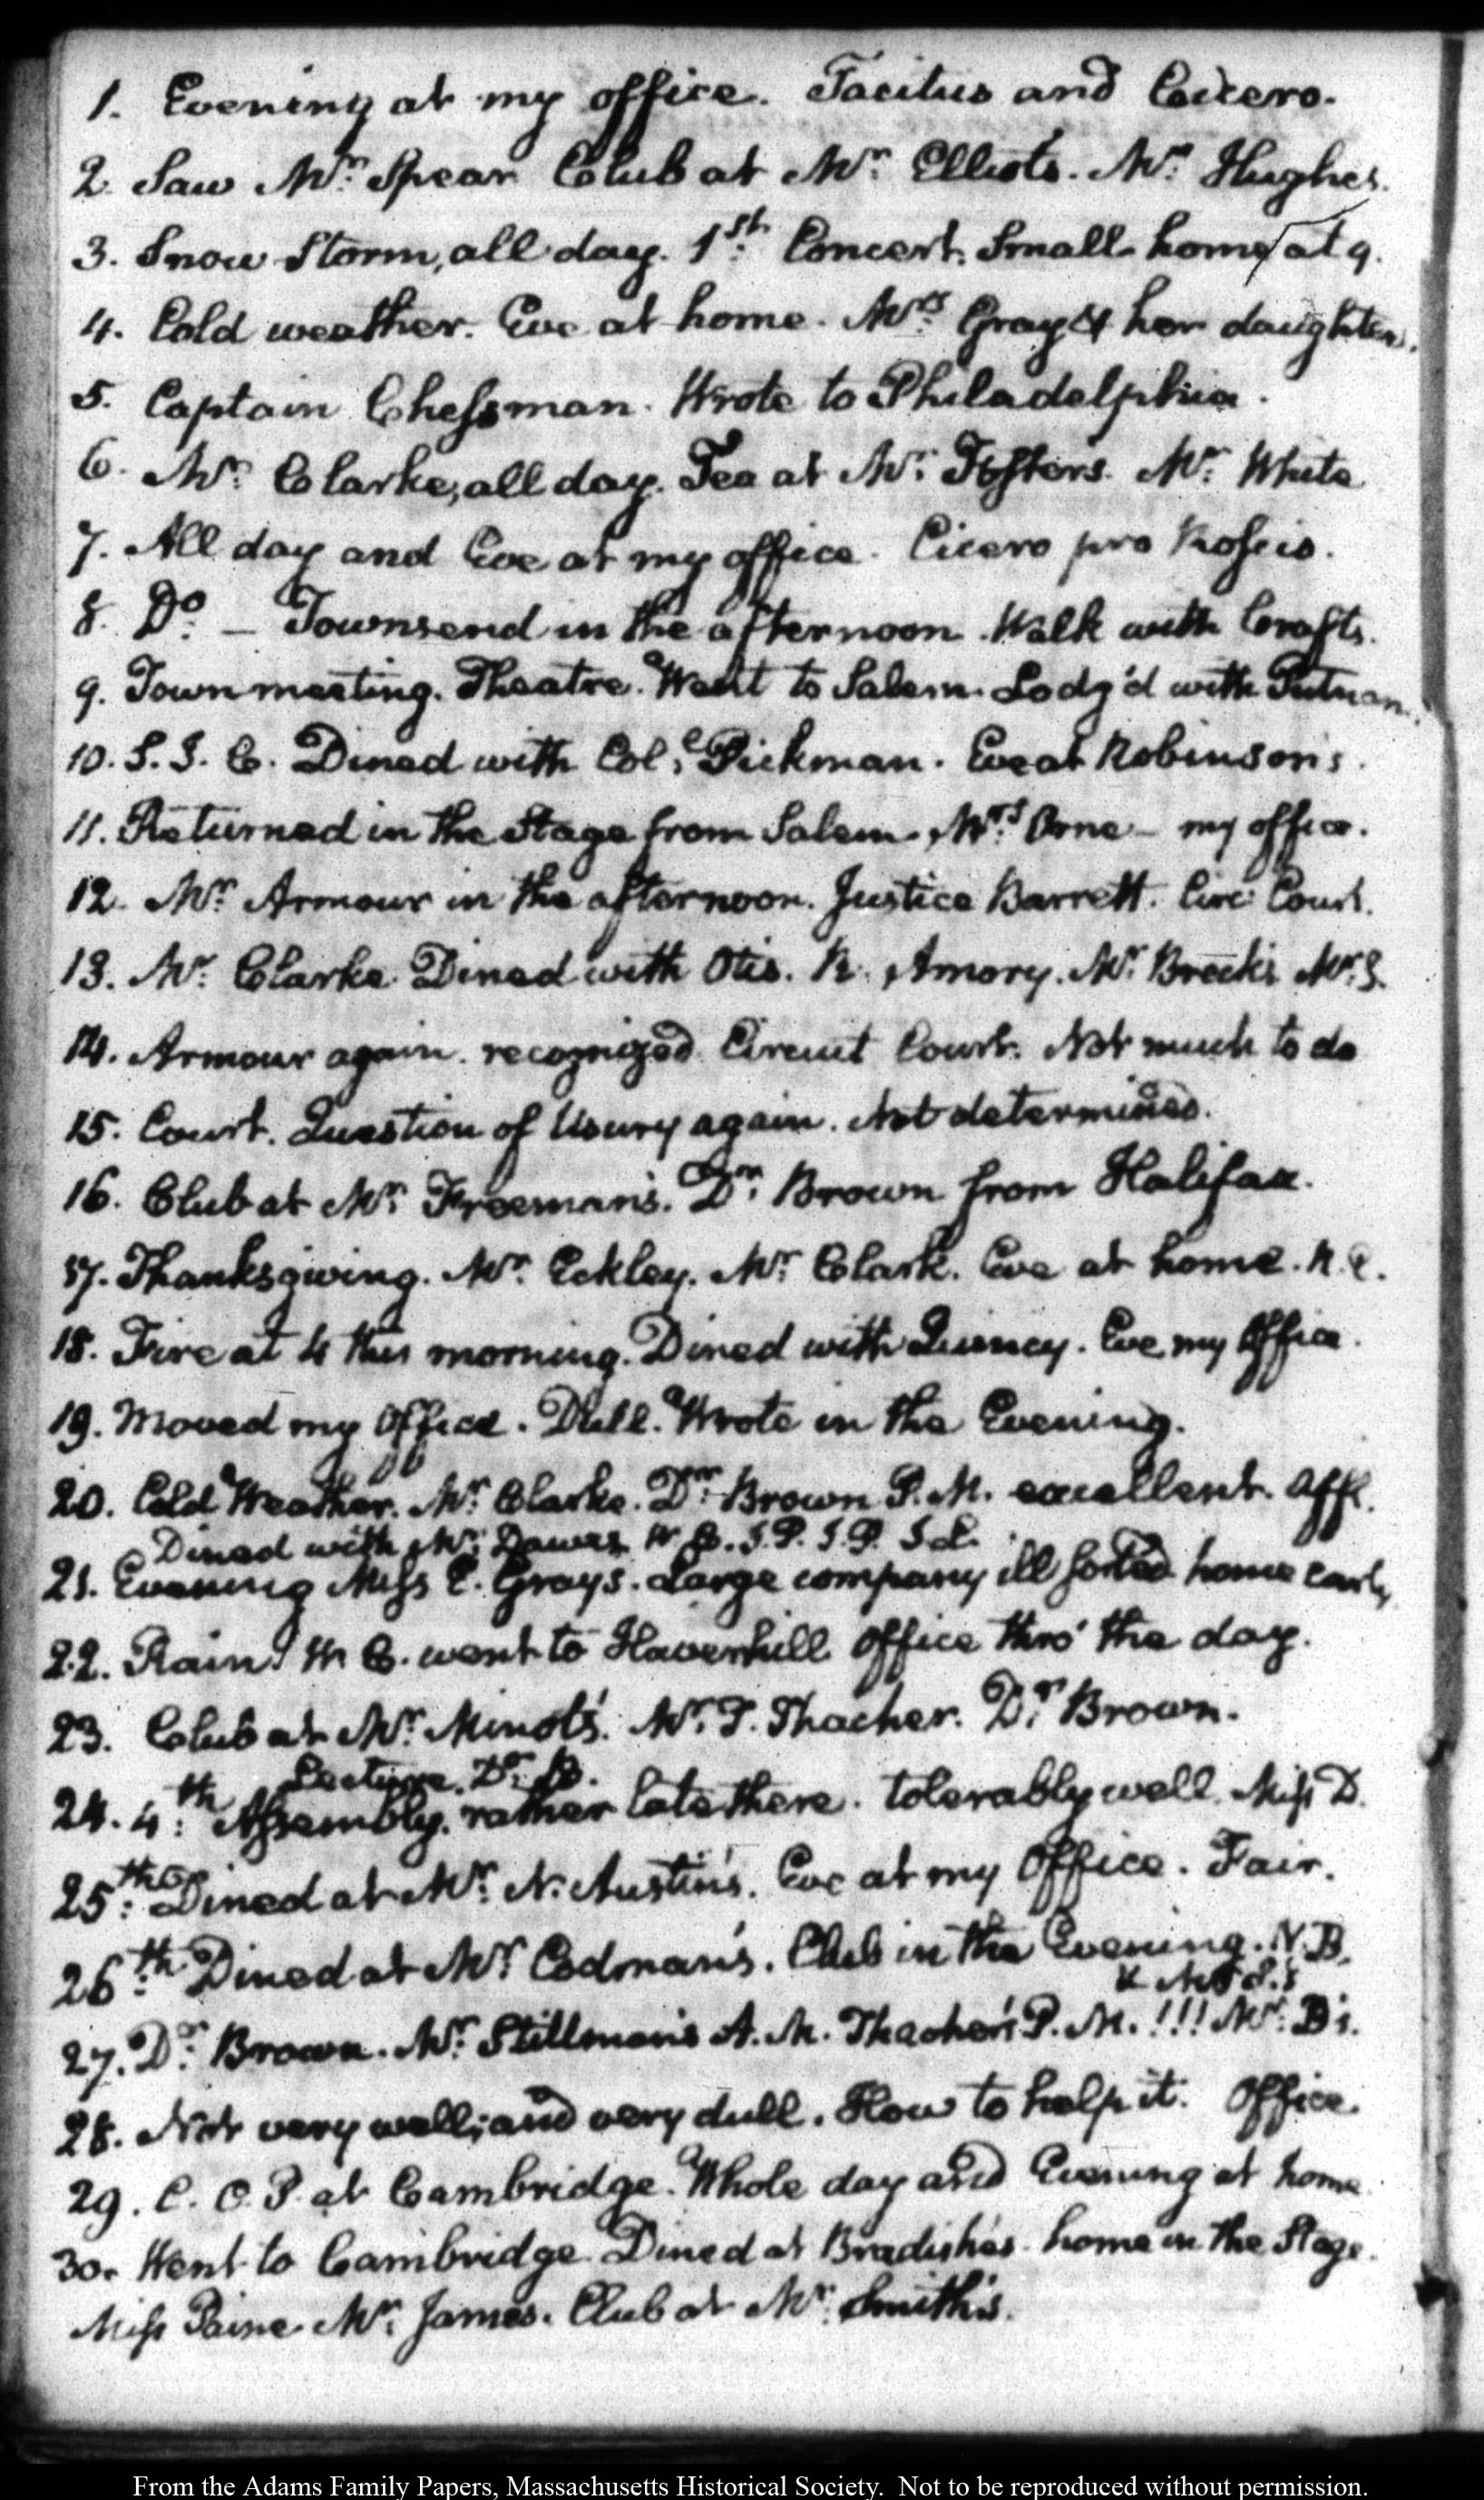 1. Evening at my office. Tacitus and Cicero.
2. Saw Mr. Spear Club at Mr. Elliots. Mr. Hughes.
3. Snow Storm, all day. 1st. Concert. Small home at 9.
4. Cold weather. Eve at home. Mrs. Gray & her daughters.
5. Captain Chessman. Wrote to Philadelphia.
6. Mr. Clarke, all day. Tea at Mr. Foster's. Mr. White
7. All day and Eve at my office. Cicero pro Roscio.
8. Do. — Townsend in the afternoon. Walk with Crafts.
9. Town meeting. Theatre. Went to Salem. Lodg'd with Putnam.
10. S. J. C. Dined with Col. Pickman. Eve at Robinson's.
11. Returned in the Stage from Salem. Mrs. Orne — my office.
12. Mr. Armour in the afternoon. Justice Barrett. Circ: Court.
13. Mr. Clarke. Dined with Otis. R. Amory. Mr. Breck's Mr. S.
14. Armour again. recognized. Circuit Court. Not much to do
15. Court. Question of Usury again. Not determined.
16. Club at Mr. Freeman's. Dr. Brown from Halifax.
17. Thanksgiving. Mr. Eckley. Mr. Clark. Eve at home. N. C.
18. Fire at 4 this morning. Dined with Quincy. Eve my Office.
19. Moved my Office. Dull. Wrote in the Evening.
20. Cold Weather. Mr. Clarke. Dr. Brown P.M. excellent. Affl.
Dined with Mr. Dawes W. C. J. P. J. P.
21. Evening Miss C. Grays. Large company ill sorted home early
22. Rain. W. C. went to Haverhill Office thro' the day.
23. Club at Mr. Minot's. Mr. T. Thacher. Dr. Brown.
Lecture. Dr. B.
24. 4th. Assembly. rather late there. tolerably well. Miss D.
25.th Dined at Mr. N. Austin's. Eve at my Office. Fair.
26.th Dined at Mr. Codman's. Club in the Evening. N.B.
27. Dr. Brown. Mr. Stillman's A. M. Thacher's P. M. !!! Mr. B's.
28. Not very well; and very dull. How to help it. Office.
29. C. C. P. at Cambridge. Whole day and Evening at home
30. Went to Cambridge. Dined at Bradish's home in the Stage.
Miss Paine Mr. James. Club at Mr. Smith's.
From the Adams Family Papers, Massachusetts Historical Society. Not to be reproduced without permission.